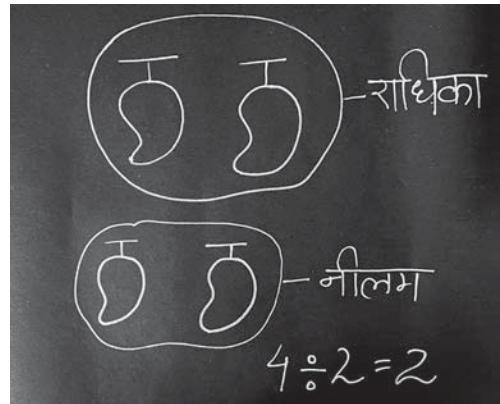 राधिका
नीलम
4÷2=2